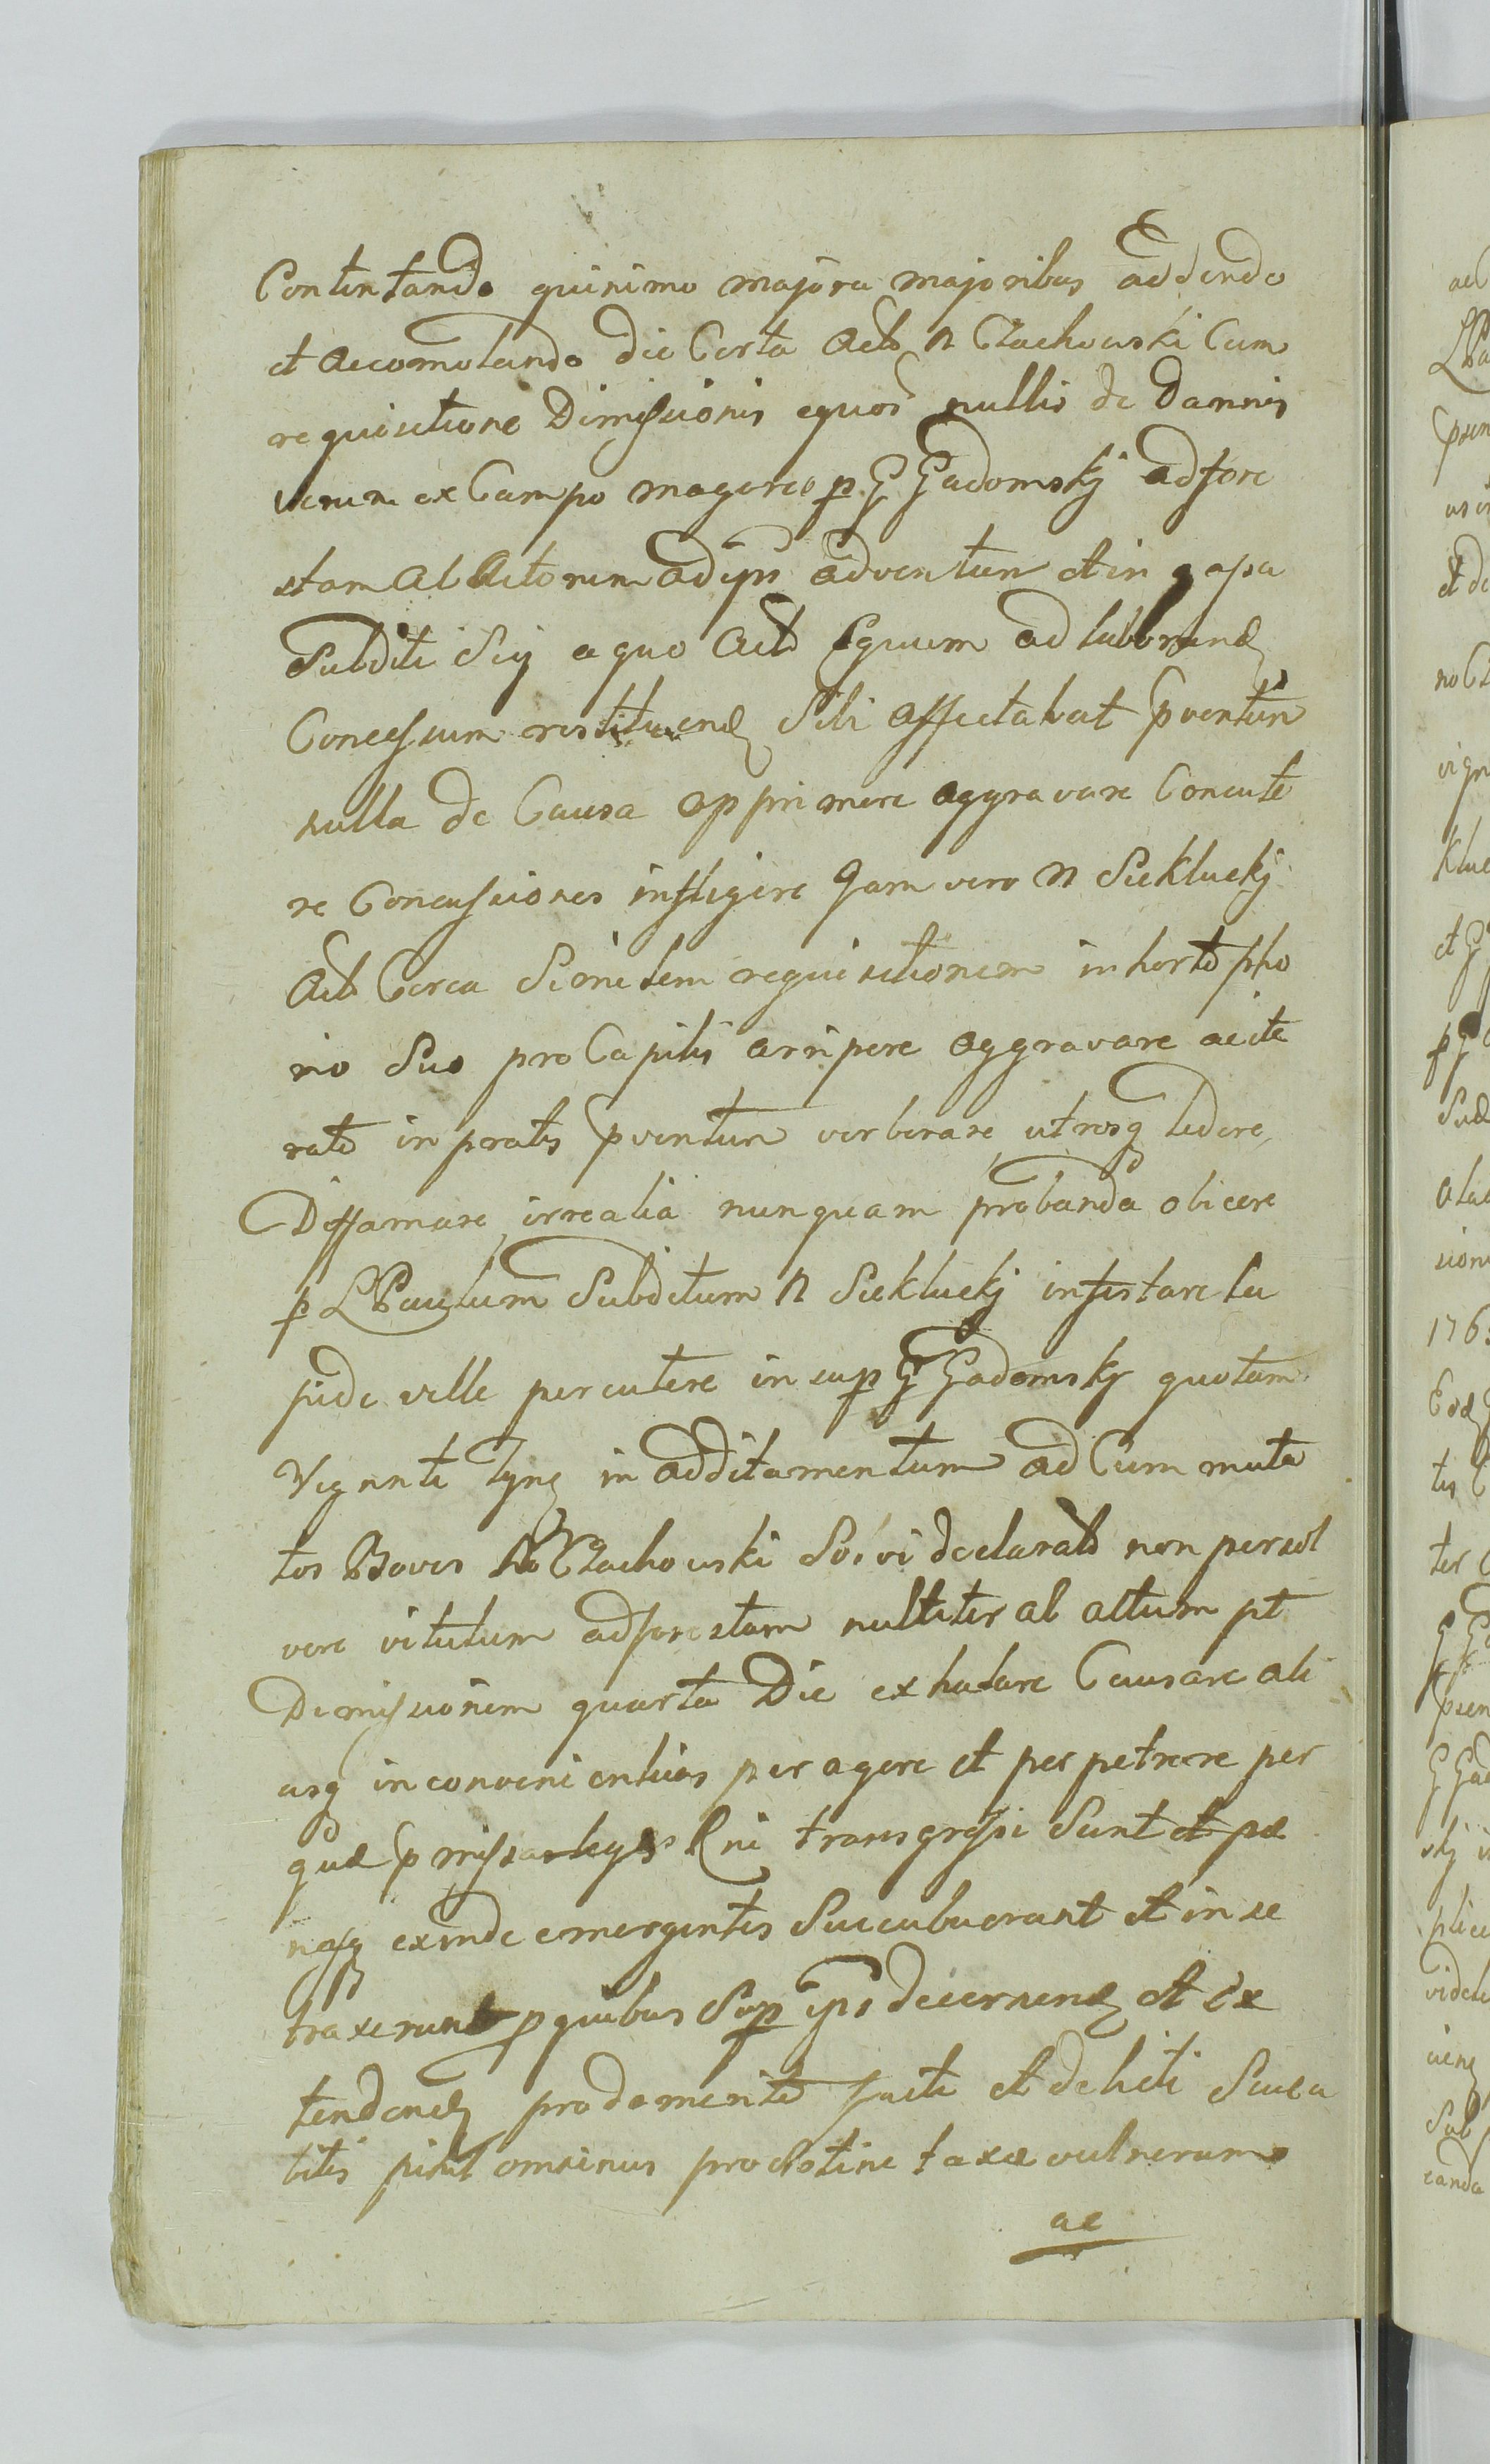 Contentando quinimo majora majoribus addendo
et accomulando die Certa Actb N Czachowski Cum
requisitione Dimissionis equor nullis de Damnis
verum ex Campo magereo p G Gadomskj adfore
stam al Actorum ad ips adventum et in casa
Subditi Sui a quo Actb Equum ad laborand
Concessum restituend Sibi affectabat pventum
nulla de Causa opprimere aggravare Concute
re Concussiones infligere Jam vero N Siekluckj
Actb Circa Scientem requisitionem in horto pho
rio Suo pro Capilis arripere aggravare acite
rato in peratis pventum verberare utrosq ledere
Diffamare irrealia nunquam probanda obicere
p L Paulum Subditum N Siekluckj infestare la
pide velle percutere insup G Gadomskj quotam
Viginti Tynf in additamentum ad Cum muta
tos Boves No Czachowski Solvi declaratb non persol
vere vitulum adforestam nulliter al altum pt
Dimissionem quarta Die exhalare Causare ali
asq inconvenientias peragere et perpetrare per
quæ pmissa leges Rni transgressi Sunt et pæ
nasq exinde emergentes Succubuerunt et in se
traxerunt p quibus Sup ips decernend et ex
tendend prodemerito facti et debiti Sua a
litis picul omninus pro obtine taxæ vulnerum
ac

ad
L Pa
psen
et de
no Cz
vign
Kluc
et G
p G
Sud
sion
176
tis C
ter
psen
G Gad
skj i
plice
videli
Sub
canda